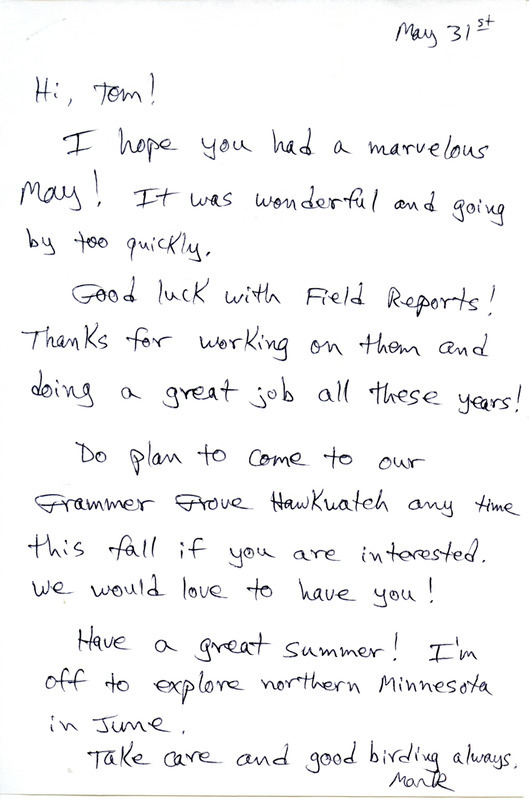 May 31st
Hi, Tom!
I hope you had a marvelous
May! It was wonderful and going
by too quickly.
Good luck with Field Reports!
Thanks for working on them and
doing a great job all these years!
Do plan to come to our
Grammer Grove Hawkwatch any time
this fall if you are interested.
We would love to have you!
Have a great summer! I'm
off to explore northern Minnesota
in June.
Take care and good birding always.
Mark